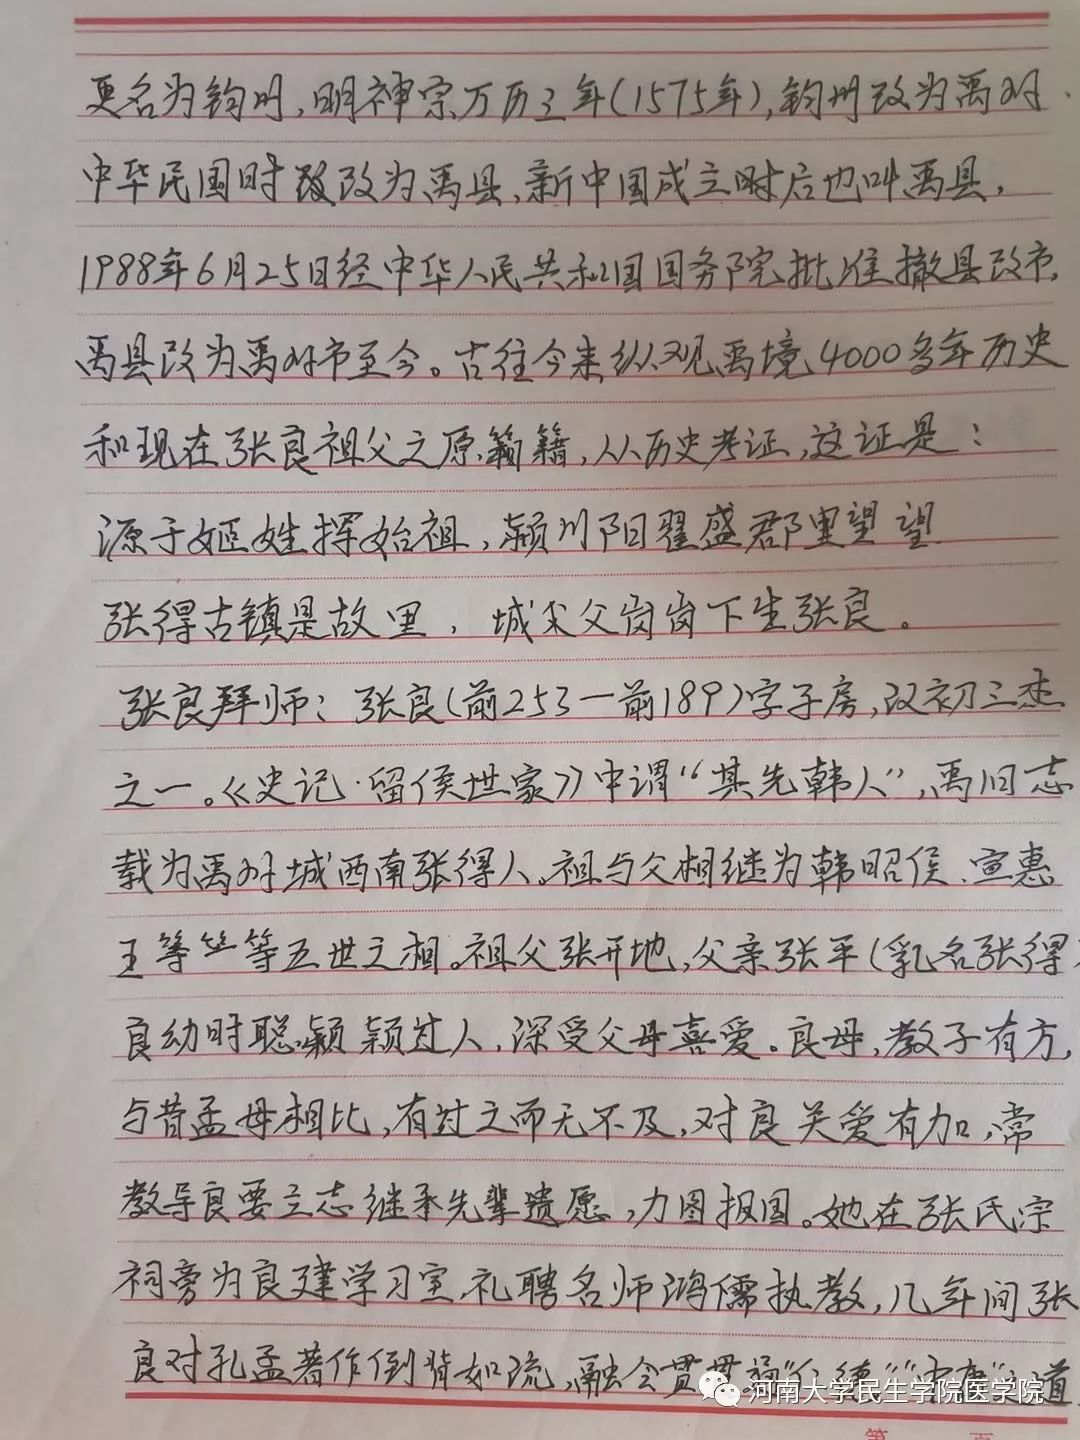 更名为钧州,明神宗万历三年(1575年),钧州改为禹州.
中华民国时改改为禹县,新中国成立时后也叫禹县,
1988年6月25日经中华人民共和国国务院批准撤县改市,
禹县改为禹州市至今。古往今来纵观禹境4000多年历史
和现在张良祖父之原籍籍,从历史考证,这证是:
源于姬姓挥始祖,颍川阳翟盛郡里望望
张得古镇是故里, 城父岗岗下生张良。
张良拜师: 张良(前253一前189)字子房,汉初三杰
之一。《史记·留侯世家》中谓“其先韩人”,禹旧志
载为禹州城西南张得人。祖与父相继为韩昭侯、宣惠
王等等五世之相。祖父张开地,父亲张平(乳名张得
良幼时聪颖颖过人,深受父母喜爱。良母,教子有方,
与昔孟母相比,有过之而无不及,对良关爱有加,常
教导良要立志继承先辈遗愿,力图报国。她在张氏宗
祠旁为良建学习室,礼聘名师鸿儒执教,几年间张
良对孔孟著作倒背如流,融会贯贯通“仁德”“中庸”之道
河南大学民生学院医学院
第 页